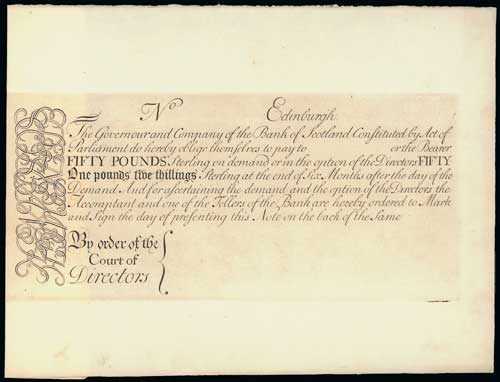 No Edinburgh
The Governour and Company of the Bank of Scotland Constituted by Act of
Parliament do hereby oblige themselves to pay to or the Bearer
FIFTY POUNDS. Sterling on demand or in the option of the Directors FIFTY
One pounds five shillings. Sterling at the end of Six Months after the day of the
Demand And for ascertaining the demand and the option of the Directors the
Accomptant and one of the Tellers of the Bank are hereby ordered to Mark
and Sign the day of presenting this Note on the back of the Same
By order of the
Court of
Directors